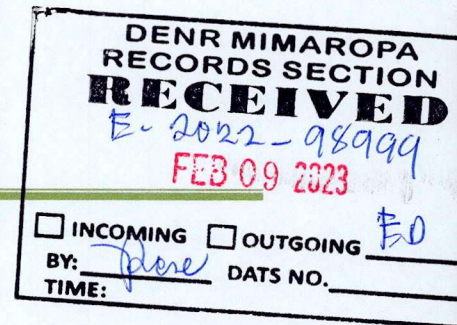 DENR MIMAROPA
RECORDS SECTION
RECEIVED
E-2022-98999
FEB 09 2023
INCOMING OUTGOING ED
BY:
DATS NO.
TIME: